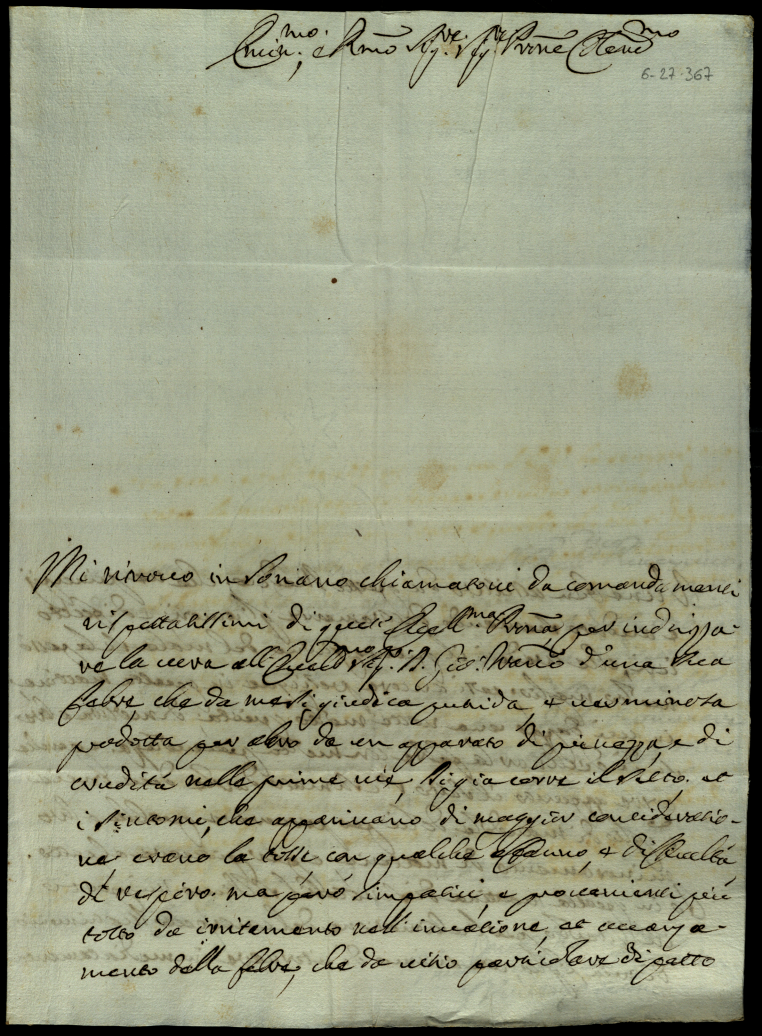 Emin.mo e Rmo Sig.re Sig.re Prone Colend.mo
6-27-367
Mi ritrovo in Soriano chiamatovi da comandamenti
rispettatissimi di Eccell.ma Prona per indrizza-
re la cura all' D. Gio. d'una
febre che da me si giudica putrida, e verminosa
prodotta per altro da un apparato di pienezza, e di
crudità nelle prime vie, si già corre il sesto, et
i sintomi, che apparivano di maggior consideratio-
ne, erano la tosse con qualche affanno, e difficultà
di respiro. ma però simpatici, e provenienti più
tosto da irritamento nell'invasione, et
mento della febre, che da vitio particolare di petto